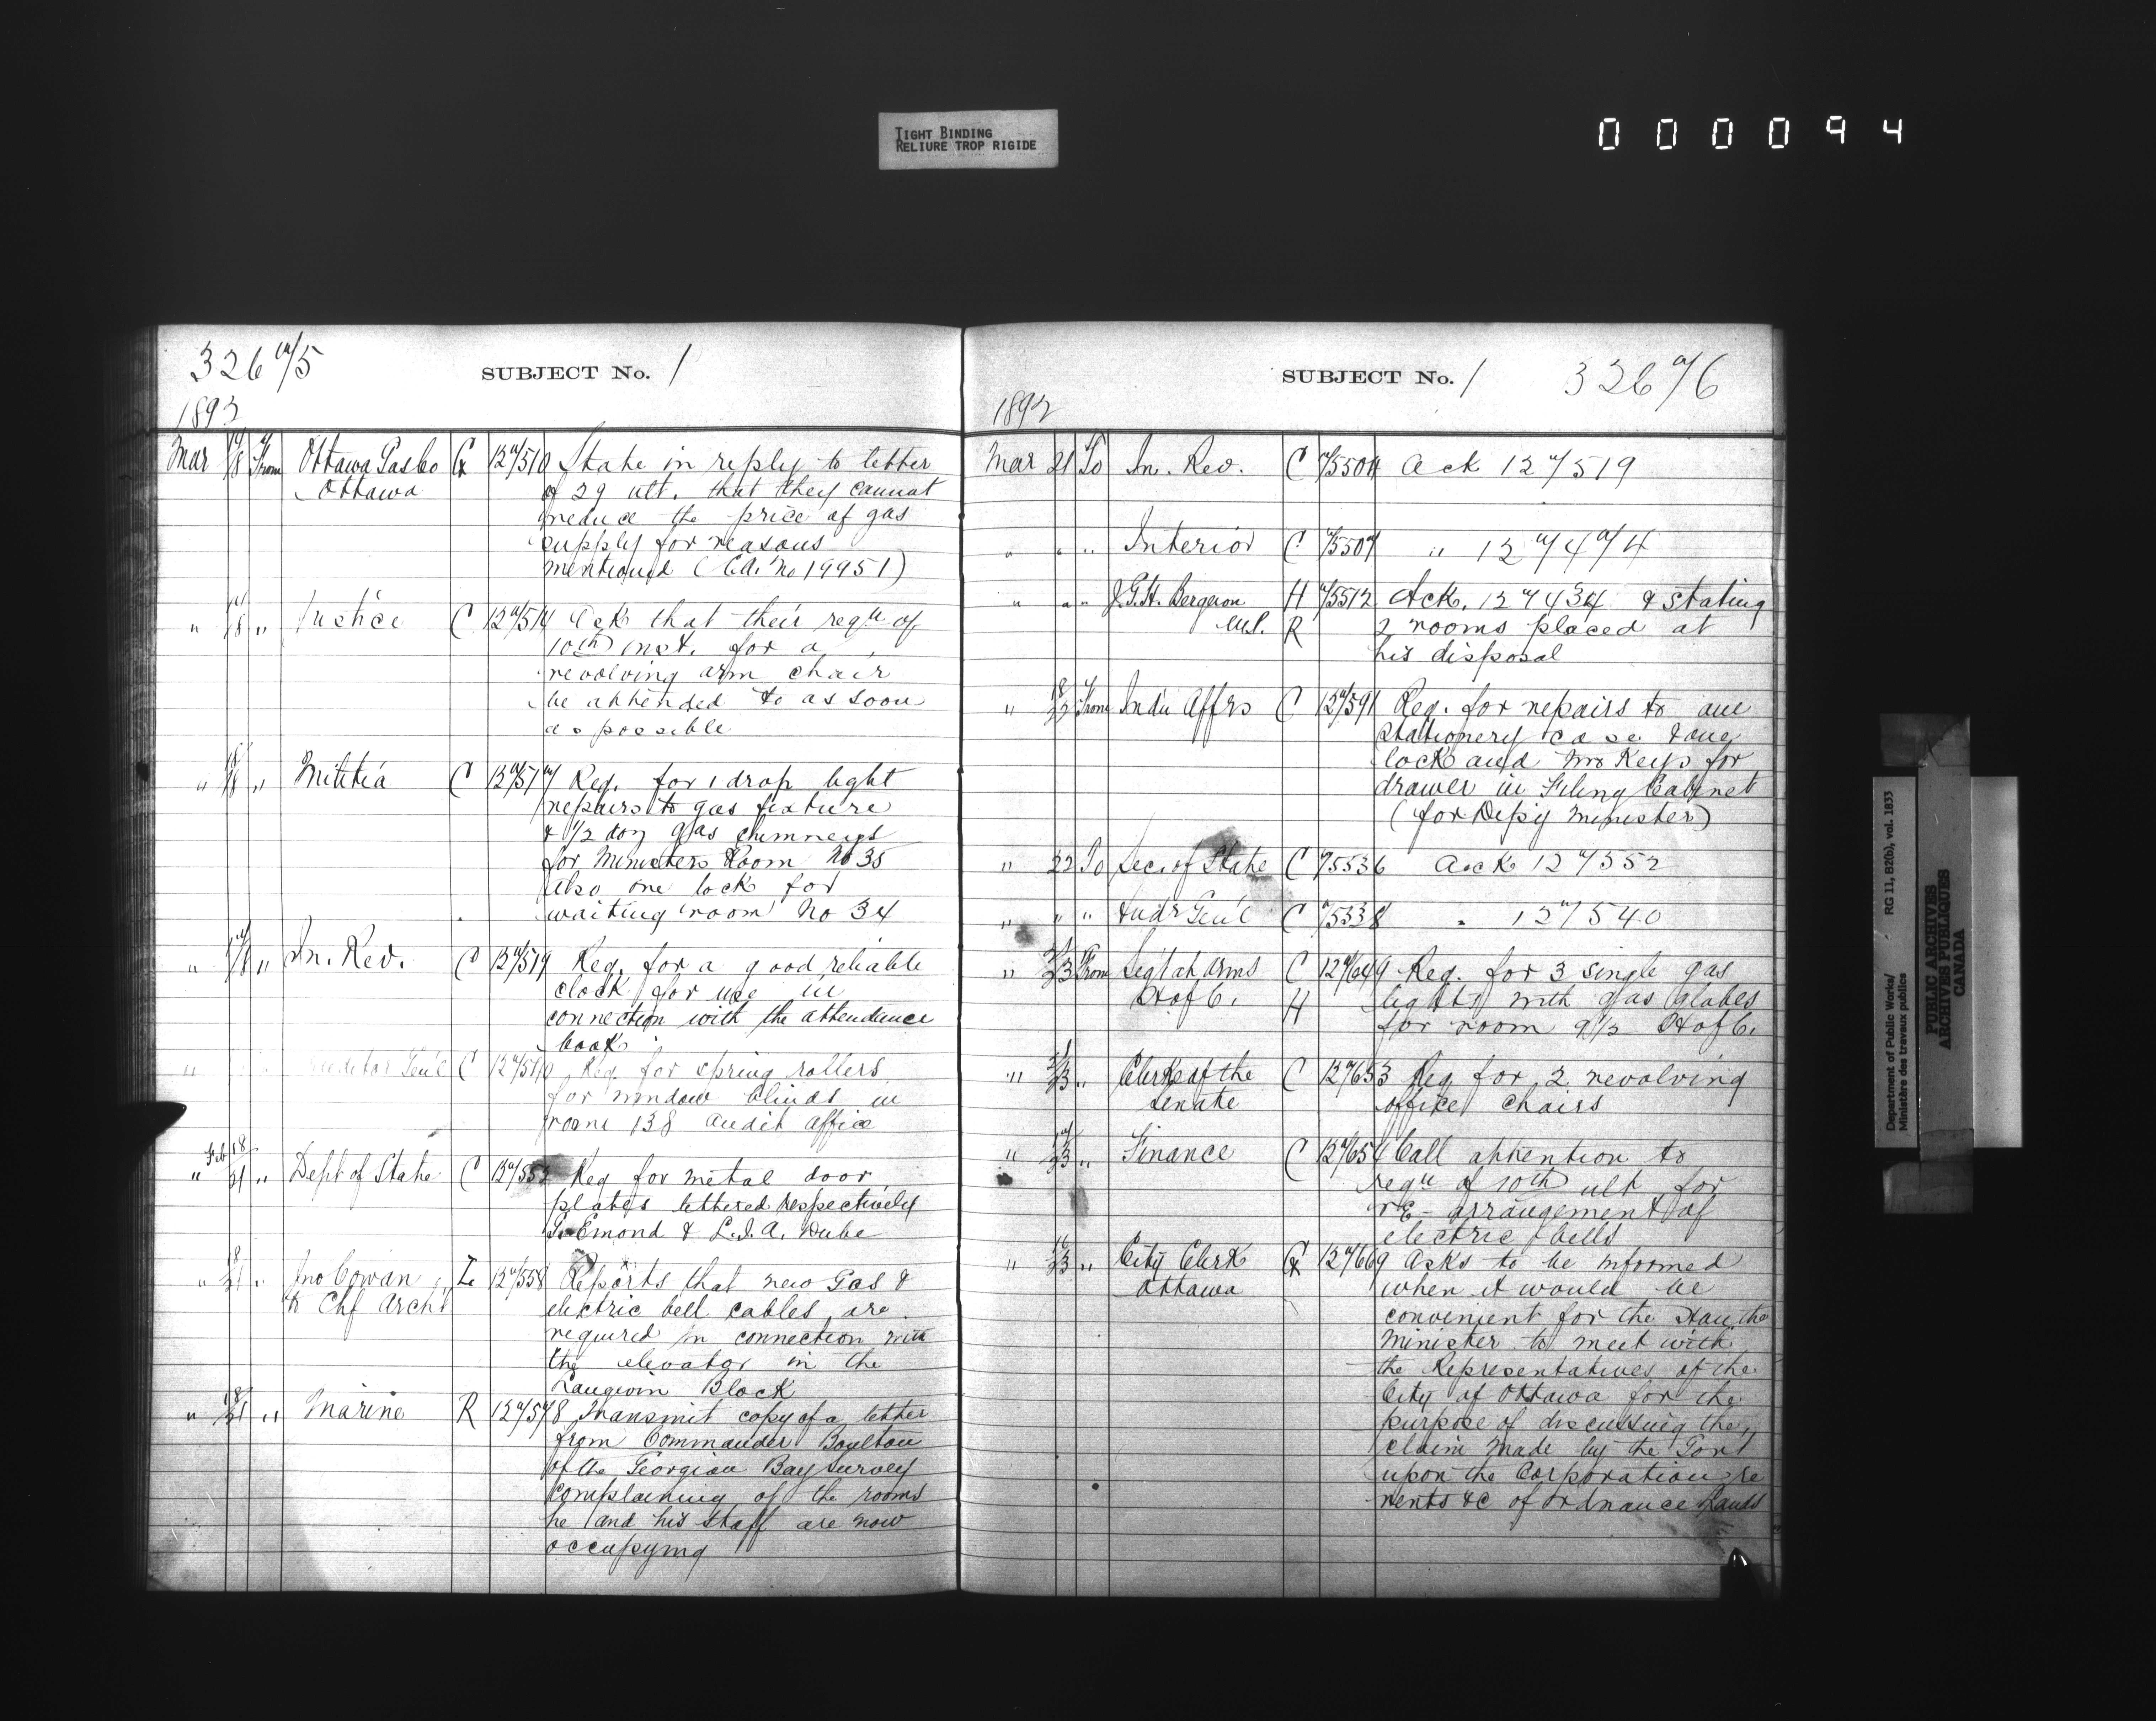 TIGHT BINDING
RELIURE TROP RIGIDE
000094
326 a/5
SUBJECT No. 1
1892
Mar 17/18 From Ottawa Gas Co G 12a/510 State in reply to letter
Ottawa of 29 ult. that they cannot
reduce the price of gas
supply for reasons
mentioned (C.A. No 19951)
" 17/18 " Justice C 12a/514 Ack that their reqn of
10th inst. for a
revolving arm chair
be attended to as soon
as possible
" 18 " Militia C 12a/517 Req. for 1 drop light
repairs to gas fixture
& 1/2 doz gas chimneys
for Ministers Room No 35
also one lock for
waiting room No 34
" 17/18 " In. Rev. C 12a/519 Req. for a good reliable
clock for use in
connection with the attendance
book
" Auditor Gen'l C 12a/540 Req for spring rollers
for window blinds in
room 138 Audit Office
Feb 18
" 21 " Dept of State C 12a/552 Req for metal door
plates lettered respectively
Emond & L.J.A. Dube
" 18/21 " Jno Cowan L 12a/558 Reports that new Gas &
to Chf Archt electric bell cables are
required in connection with
the elevator in the
Langevin Block
" 18/21 " Marine R 12a/578 Transmit copy of a letter
from Commander Boulton
of the Georgian Bay survey
complaining of the rooms
he and his staff are now
occupying
SUBJECT No. 1
326 a/6
1892
Mar 21 To In. Rev. C a/5504 Ack 12a/519
" " " Interior C a/5507 " 12a/4a/4
" " " J.G.H. Bergeron H a/5512 Ack. 12a/434 & stating
M.P. R 2 rooms placed at
his disposal
" 18/22 From Indn Affrs C 12a/591 Req. for repairs to one
stationery case & one
lock and two Keys for
drawer in Filing Cabinet
(for Depy Minister)
" 22 To Sec. of State C a/5536 Ack 12a/552
" " " Audr Gen'l C a/5338 " 12a/540
" 23 From Sergt at Arms C 12a/649 Req. for 3 single gas
H of C. H lights with gas globes
for room 9 1/2 H of C.
" 23 " Clerk of the C 12a/653 Req for 2 revolving
Senate office chairs
" 17/23 " Finance C 12a/654 Call attention to
reqn of 10th ult for
re-arrangement of
electric bells
" 16/23 " City Clerk G 12a/669 Asks to be informed
Ottawa when it would be
convenient for the Hon. the
Minister to meet with
the Representatives of the
City of Ottawa for the
purpose of discussing the
claim made by the Govt
upon the Corporation re
rents &c of Ordnance Lands
Department of Public Works/
Ministère des travaux publics
RG 11, B2(b), vol. 1833
PUBLIC ARCHIVES
ARCHIVES PUBLIQUES
CANADA